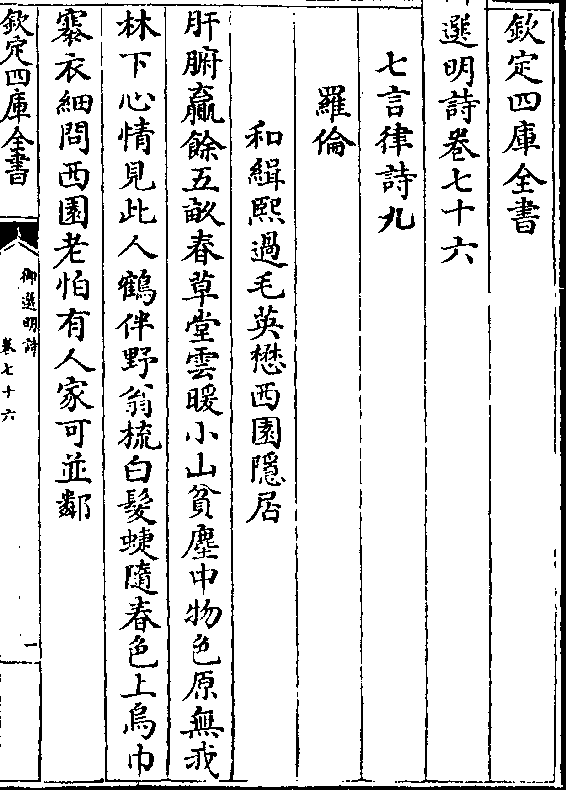 欽定四庫全書
選明詩卷七十六
七言律詩九
羅倫
和緝熙過毛英懋西園隱居
肝腑贏餘五畝春草堂雲暖小山貧塵中物色原無我
林下心情見此人鶴伴野翁梳白髮蜨隨春色上烏巾
褰衣細問西園老怕有人家可並鄰
欽定四庫全書
御選明詩
卷七十六
一